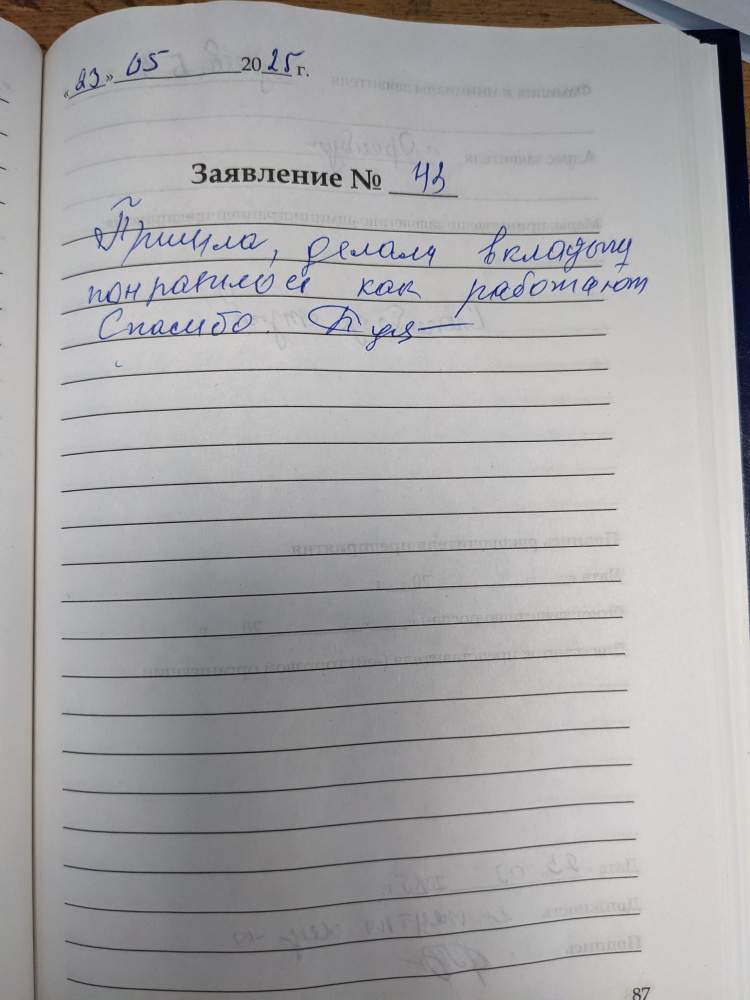 «23» 05 2025 г.
Заявление № 43
Пришла, делала вкладыш
понравилося как работают
Спасибо
87